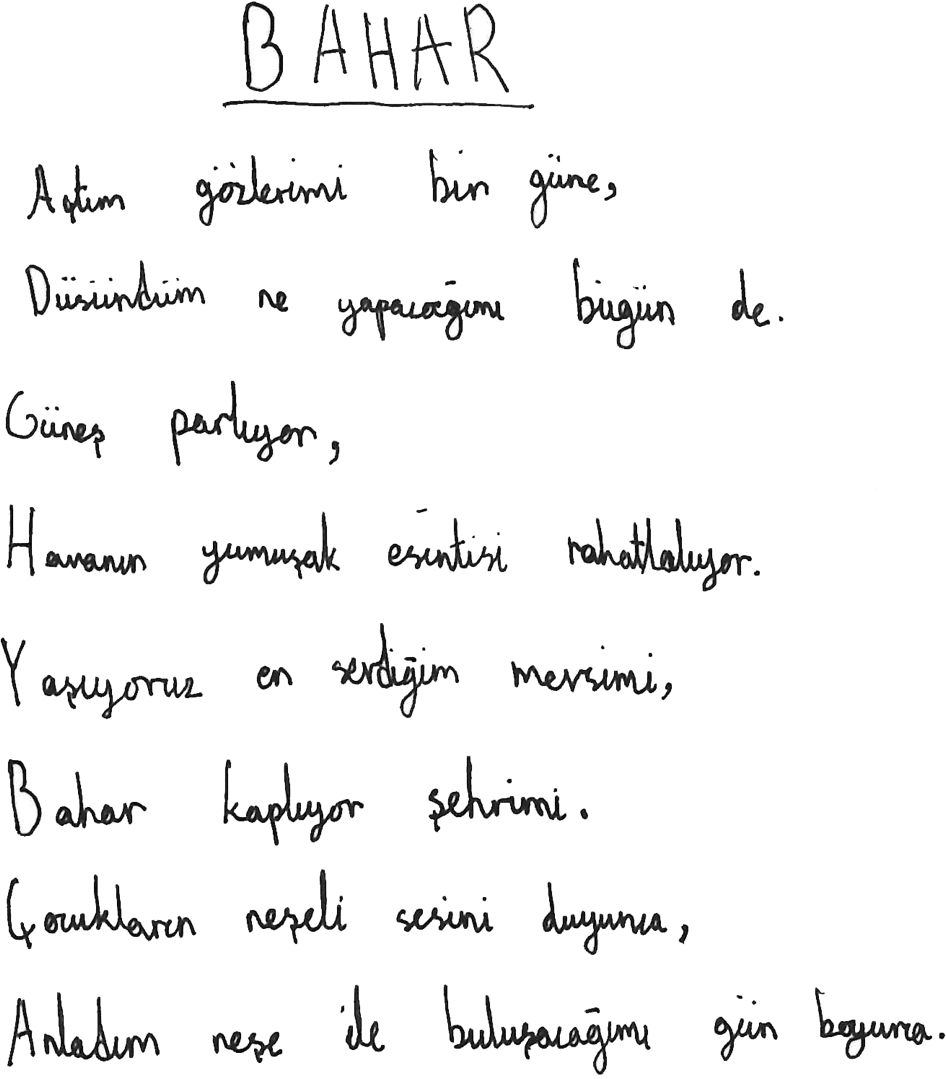 BAHAR
Açtım gözlerimi bin güne,
Düsündüm ne yapacağımı bügün de.
Güneş parlıyor,
Havanın yumuşak esintisi rahatlalıyor.
Yaşıyoruz en sevdiğim mevsimi,
Bahar kaplıyor şehrimi.
Çocukların neşeli sesini duyunca,
Anladım neşe ile buluşacağımı gün boyunca.